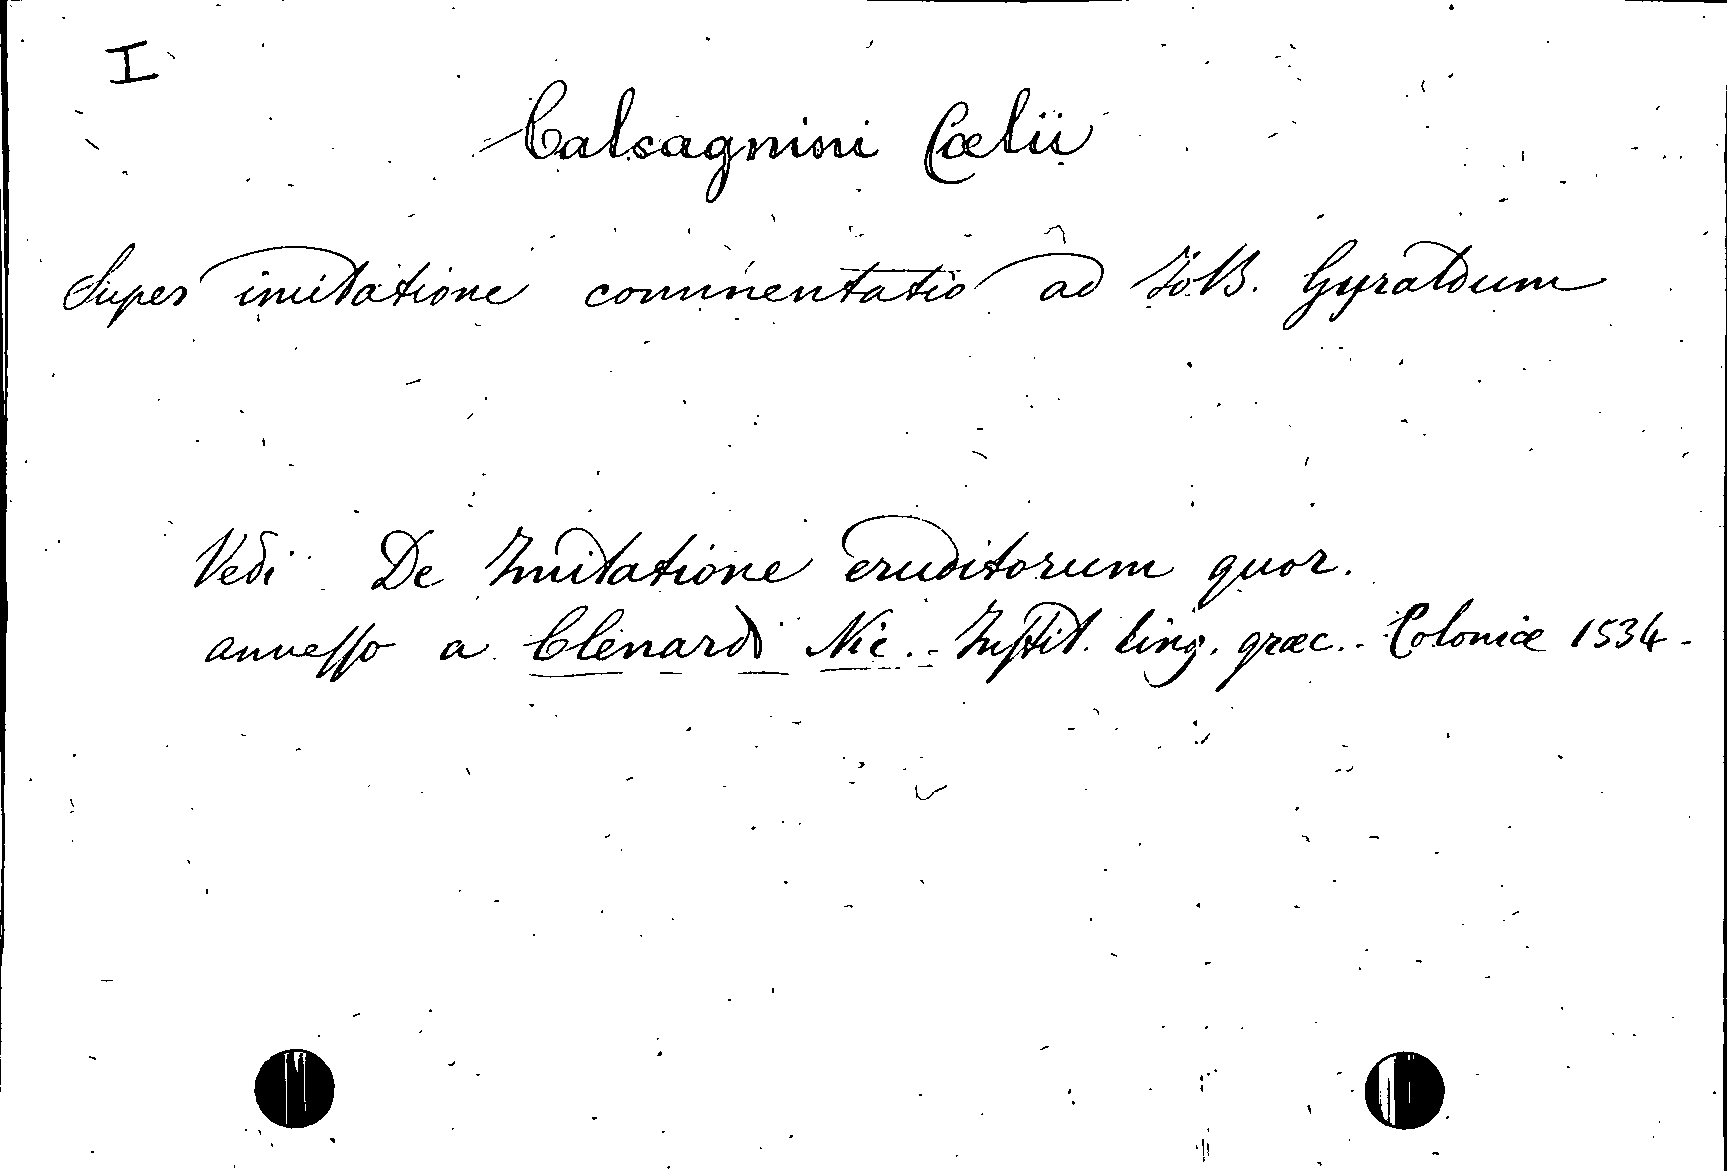 I
Calsagnini Cœlii
Super imitatione commentatio ad Jo. B. Gyraldum
Vedi De Imitatione eruditorum quor.
annesso a Clenardi Nic. - Instit. ling. græc. - Coloniæ 1534 -